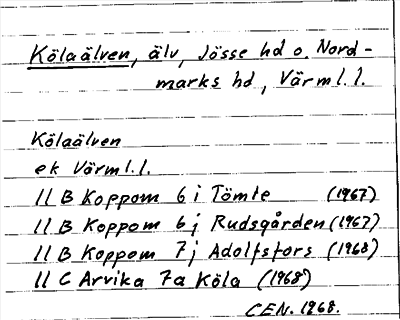 Kölaälven, älv, Jösse hd o. Nord-
marks hd, Värml.l.
Kölaälven
ek Värml.l.
11 B Koppom 6 i Tömte (1967)
11 B Koppom 6 j Rudsgården (1967)
11 B Koppom 7 j Adolfsfors (1968)
11 C Arvika 7a Köla (1968)
CEN. 1968.